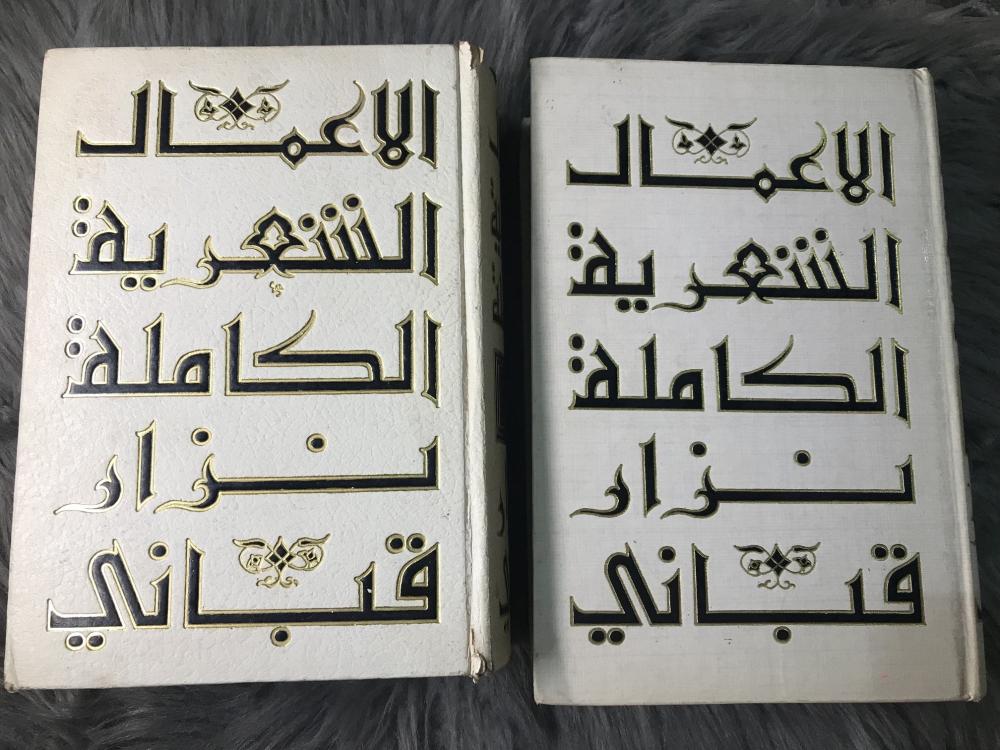 الاعمال
الشعرية
الكاملة
نزار
قباني
الاعمال
الشعرية
الكاملة
نزار
قباني